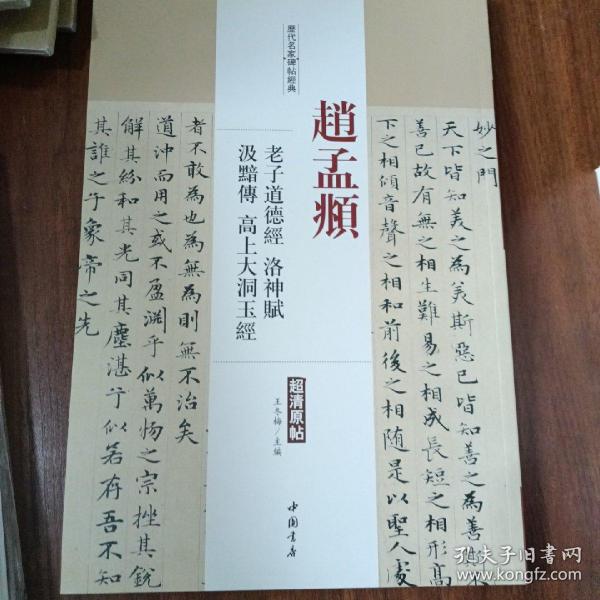 歷代名家碑帖經典
趙孟頫
老子道德經 洛神賦
汲黯傳 高上大洞玉經
超清原帖
王冬梅／主編
中国书店
妙之門
天下皆知美之為美斯惡已皆知善之為善
善已故有無之相生難易之相成長短之相形高
下之相傾音聲之相和前後之相随是以聖人處
者不敢為也為無為則無不治矣
道沖而用之或不盈淵乎似萬物之宗挫其銳
解其紛和其光同其塵湛兮似若存吾不知
其誰之子象帝之先
孔夫子旧书网
book.kongfz.com